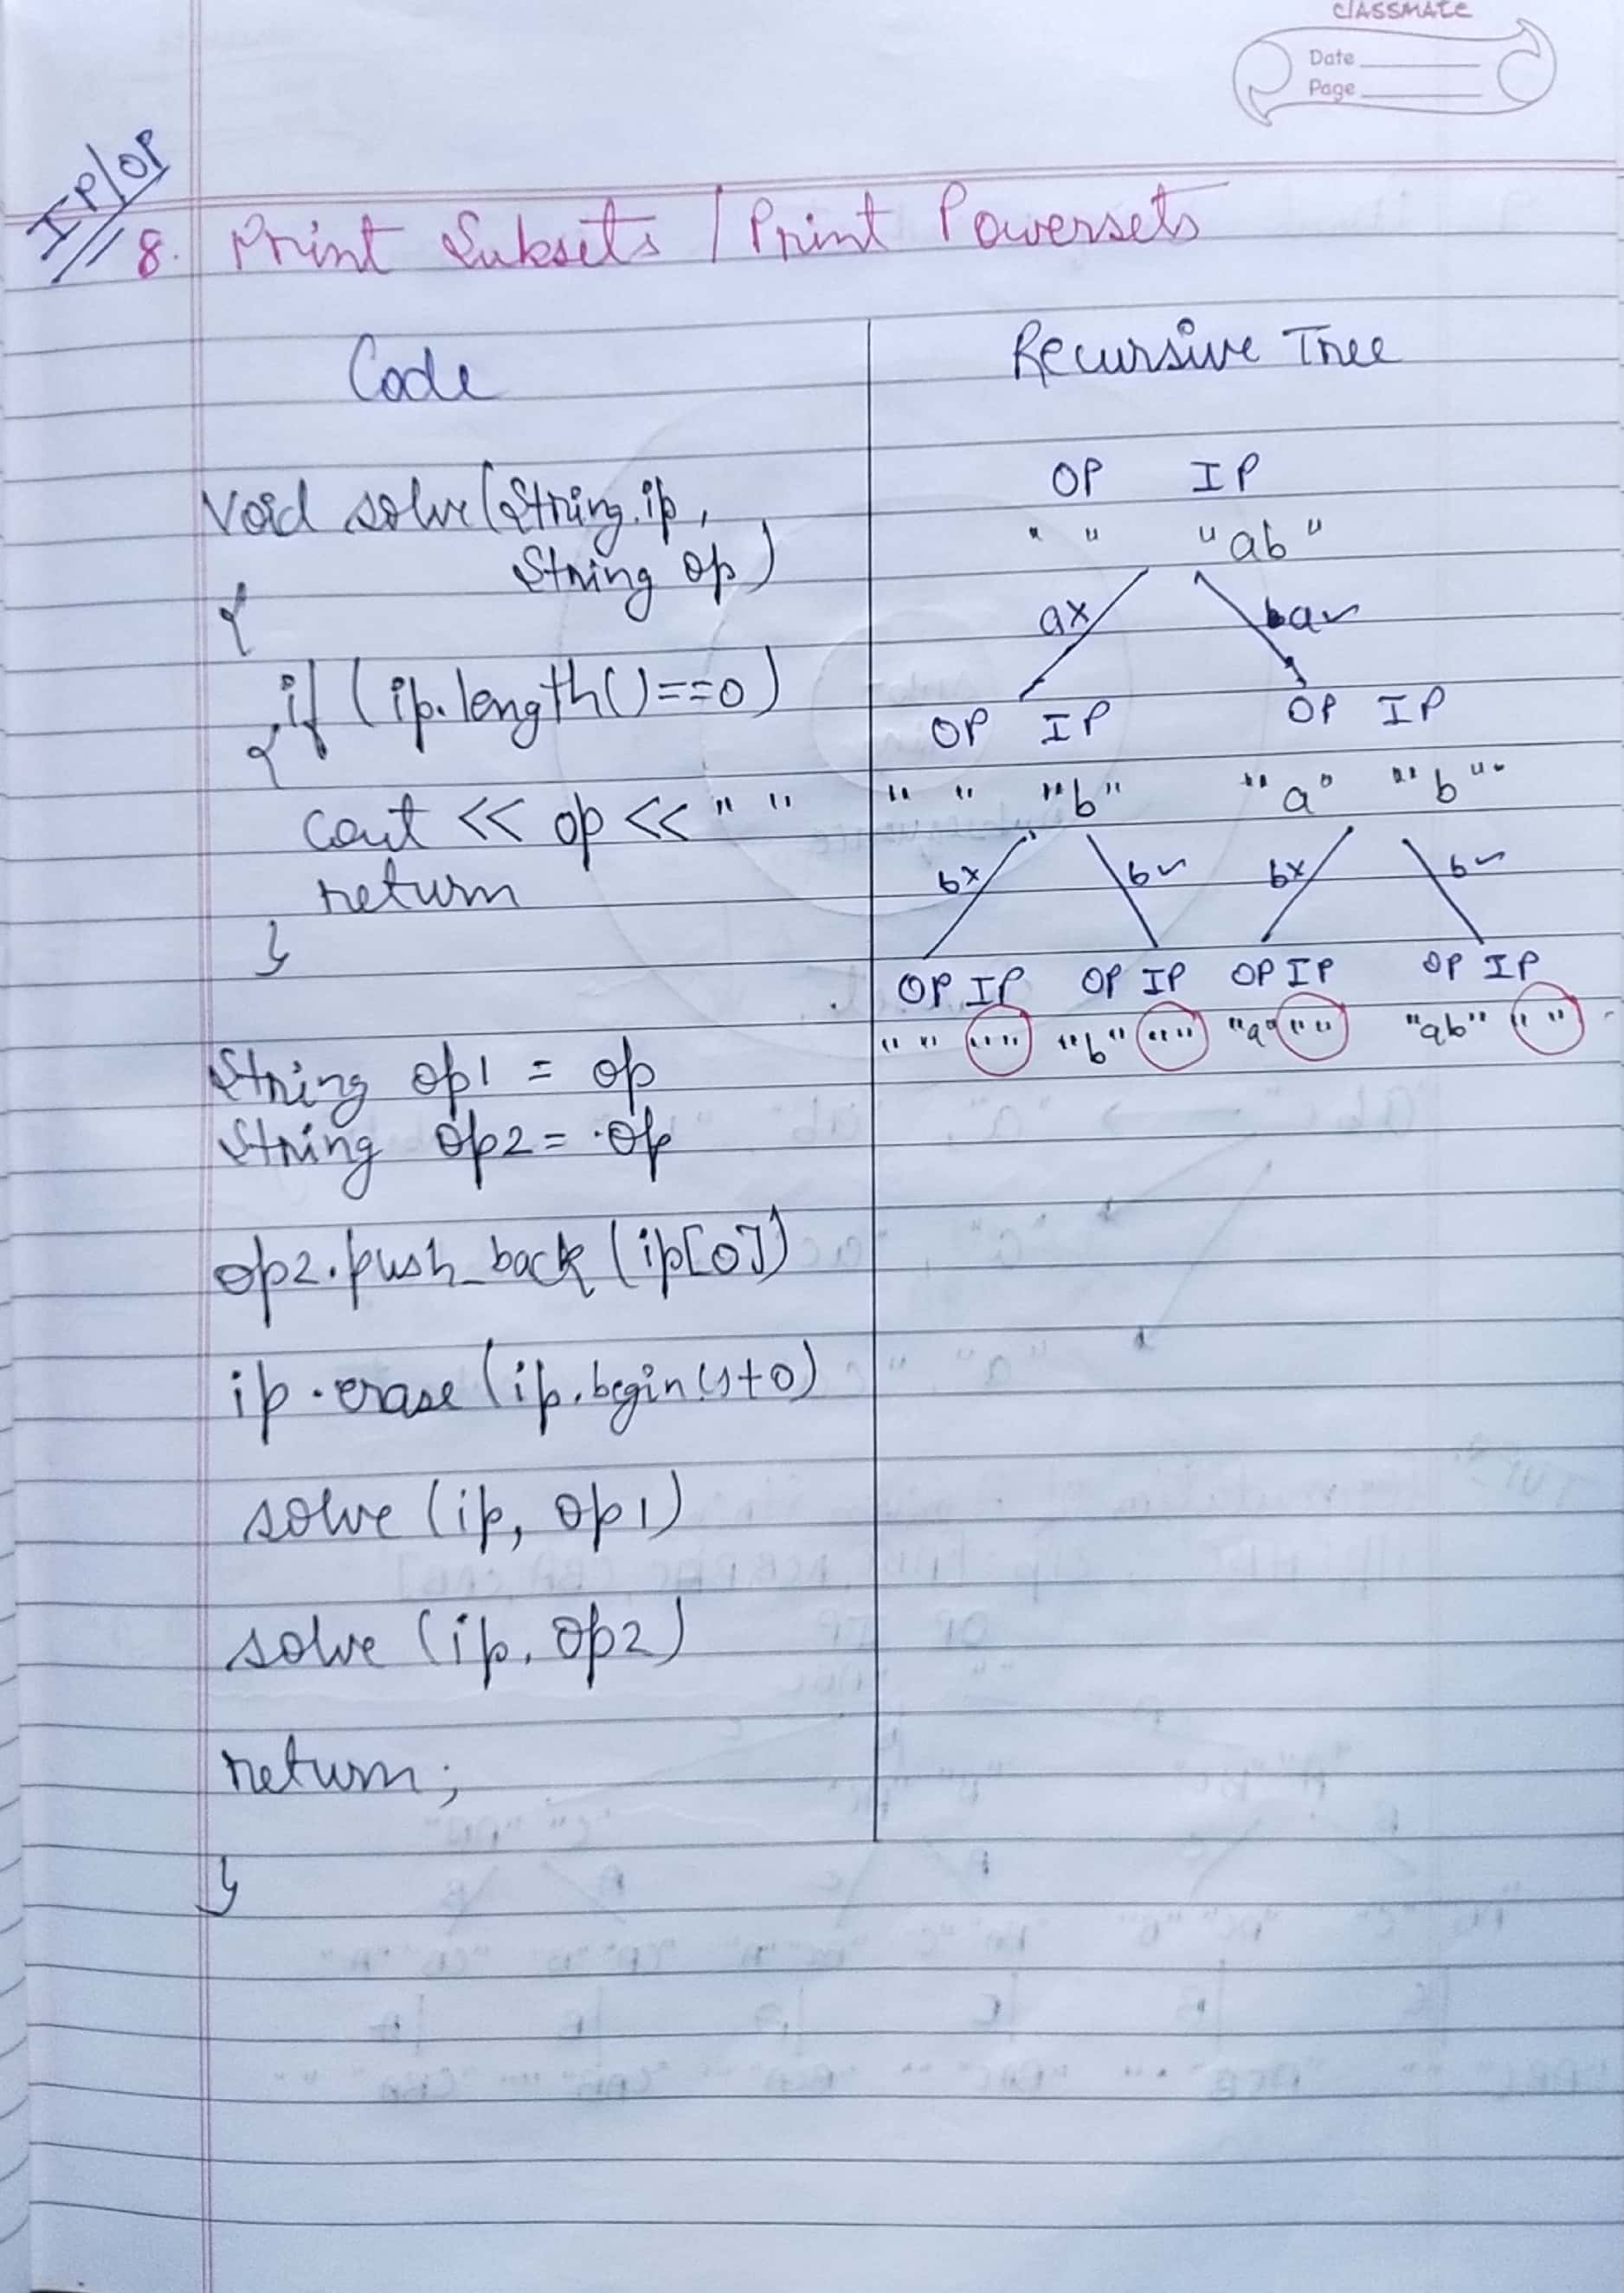 classmate
Date
Page
IP/OP
8. Print Subsets / Print Powersets
Code
void solve (String ip,
String op)
{
if (ip.length()==0)
{
cout << op << " "
return
}
String op1 = op
String op2 = op
op2.push_back (ip[0])
ip.erase (ip.begin()+0)
solve (ip, op1)
solve (ip, op2)
return;
}
Recursive Tree
OP IP
" " "ab"
ax a✓
OP IP OP IP
" " "b" "a" "b"
bx b✓ bx b✓
OP IP OP IP OP IP OP IP
" " " " "b" " " "a" " " "ab" " "